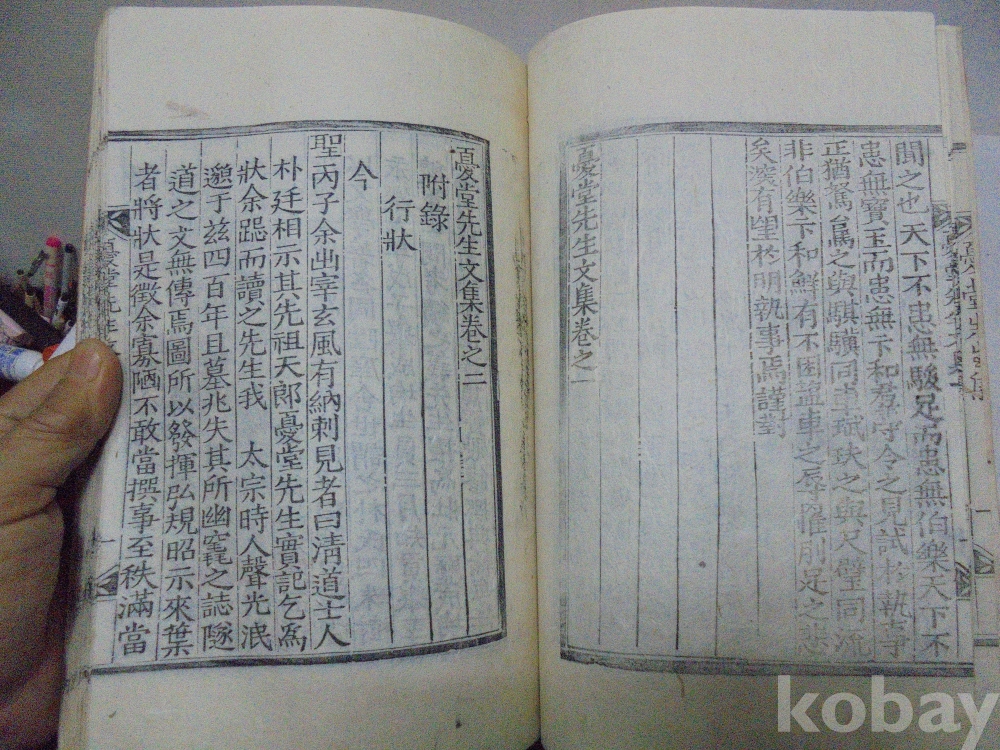 聞之也天下不患無駿足而患無伯樂天下不
患無寶玉而患無卞和君守令之見試於執事
正猶駑駘之與騏驥同阜珷玞之與尺璧同流
非伯樂卞和鮮有不困鹽車之辱罹刖足之悲
矣深有望於明執事焉謹對
憂堂先生文集卷之一
憂堂先生文集卷之二
附錄
行狀
今
聖丙子余出宰玄風有納刺見者曰淸道士人
朴廷相示其先祖天郎憂堂先生實記乞爲
狀余跽而讀之先生我 太宗時人聲光泯
邈于玆四百年且墓兆失其所幽竁之誌隧
道之文無傳焉圖所以發揮弘規昭示來葉
者將狀是徵余寡陋不敢當撰事至秩滿當
憂堂先生
一
kobay